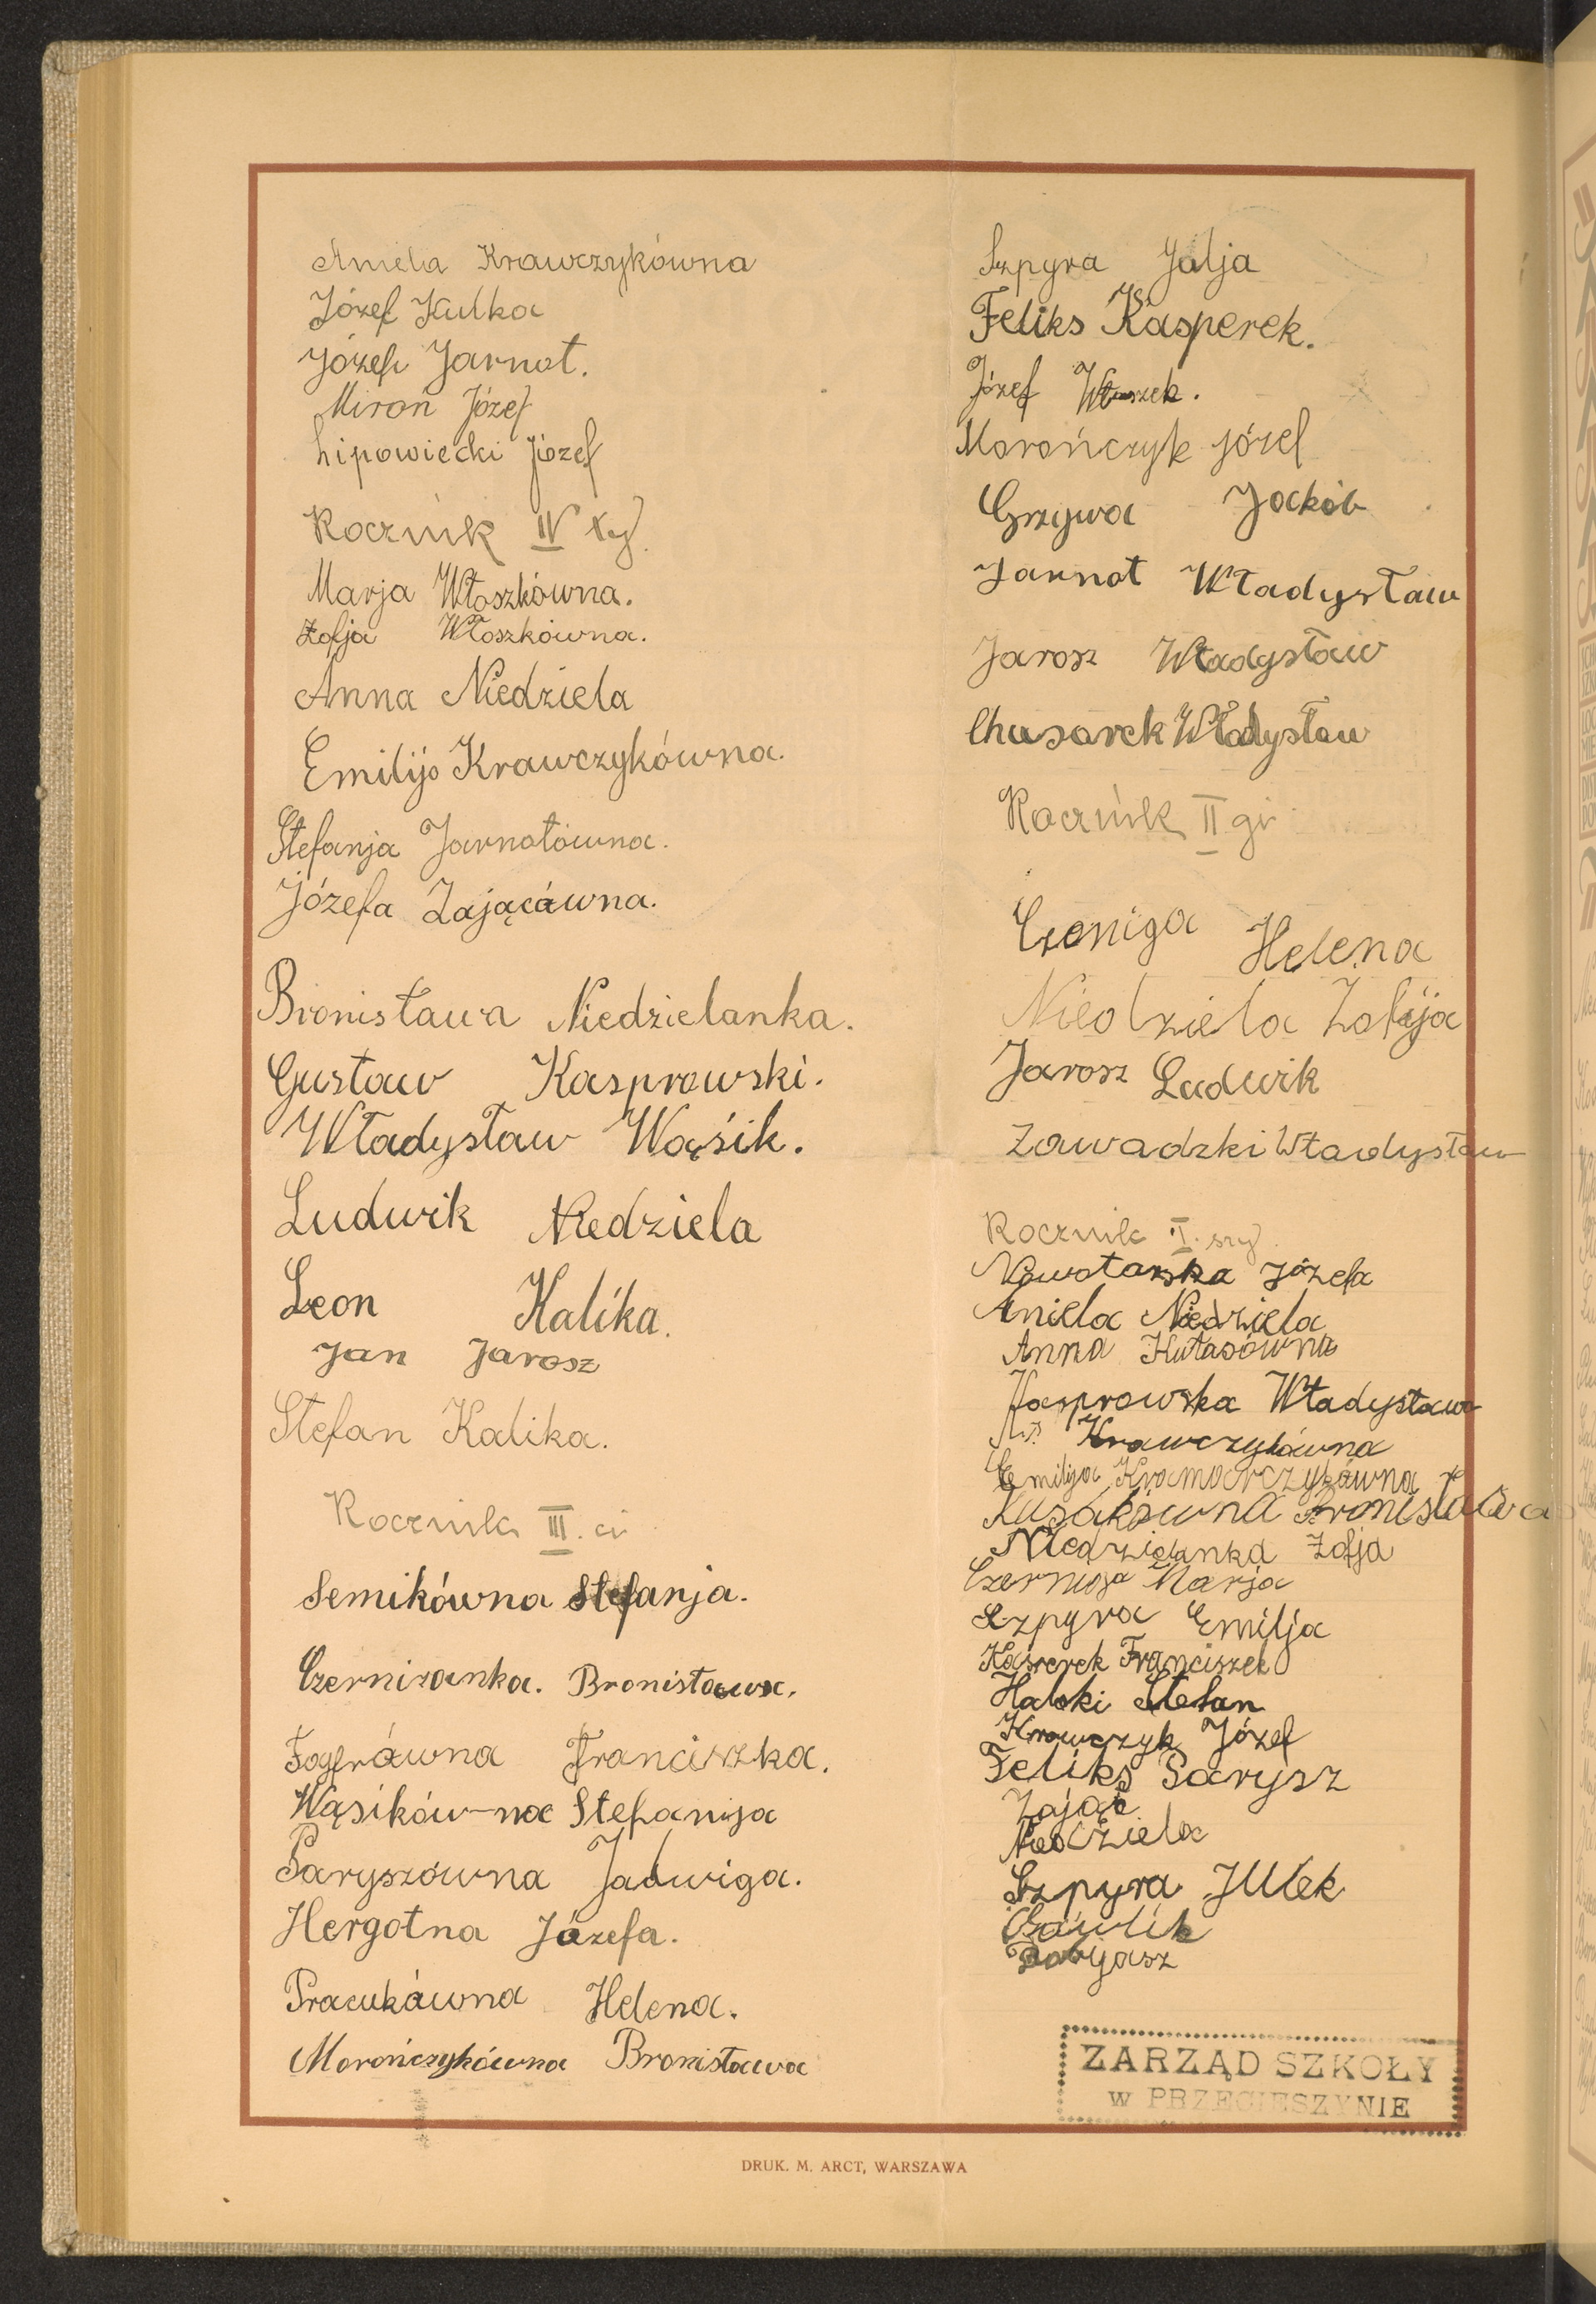 Aniela Krawczykówna
Józef Kulka
Józef Jarnot.
Miroń Józef
Lipowiecki Józef
Rocznik IV ty
Marja Włoszkówna.
Zofja Włoszkówna.
Anna Niedziela
Emilija Krawczykówna.
Stefanja Jarnotówna.
Józefa Zającówna.
Bronisława Niedzielanka.
Gustaw Kasprowski.
Władysław Wąsik.
Ludwik Niedziela
Leon Kalika.
Jan Jarosz
Stefan Kalika.
Rocznik III. ci
Semikówna Stefanja.
Czernizanka. Bronisława.
Franciszka.
Wąsików-na Stefanija
Paryszówna Jadwiga.
Hergotna Józefa.
Pracukówna Helena.
Morończykówna Bronisława
Szpyra Julja
Feliks Kasperek.
Józef Włoszek.
Morończyk józef
Grzywa Jackób
Jarnot Władysław
Jarosz Władysław
Chusarek Władysław
Rocznik II gi
Helena
Niedziela Zofija
Jarosz Ludwik
Zawadzki Władysław
Rocznik I. szy
Nowotarska Józefa
Aniela Niedziela
Anna Kutasówna
Kasprowska Władysława
Krawczykówna
Emilija Kramarczykówna
Kusakówna Bronisława
Niedzielanka Zofja
Czerniga Marja
Szpyra Emilja
Kasperek Franciszek
Halski Stefan
Krawczyk Józef
Feliks Parysz
Zając
Niedziela
Szpyra Julek
Gawlik
ZARZĄD SZKOŁY
w PRZECIESZYNIE
DRUK. M. ARCT, WARSZAWA